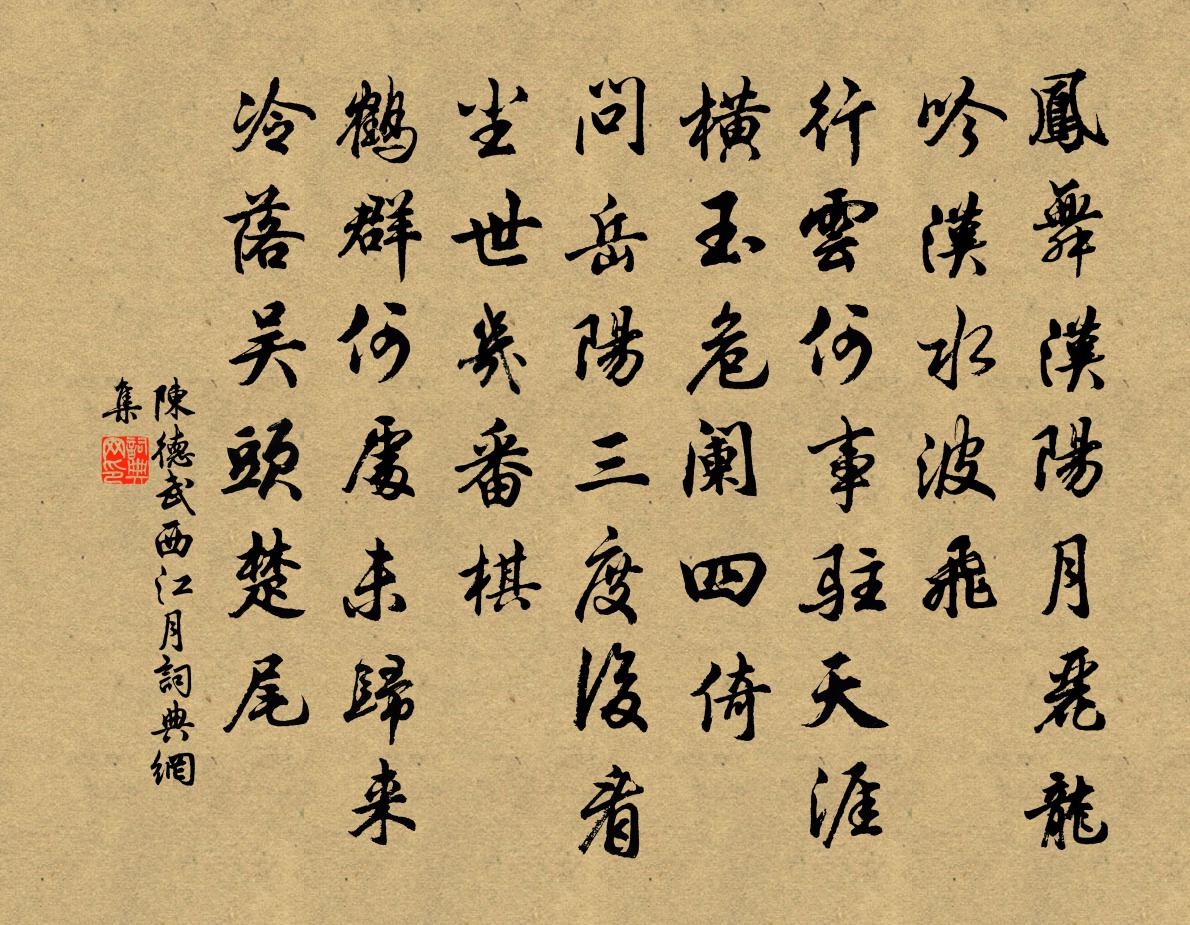 鳳舞漢陽月麗龍
吟漢水波飛
行雲何事駐天涯
橫玉危闌四倚
問岳陽三度後看
坐世幾番棋
鶴群何處未歸来
冷落吴頭楚尾
陳德武西江月詞典網
集
詞典
网印